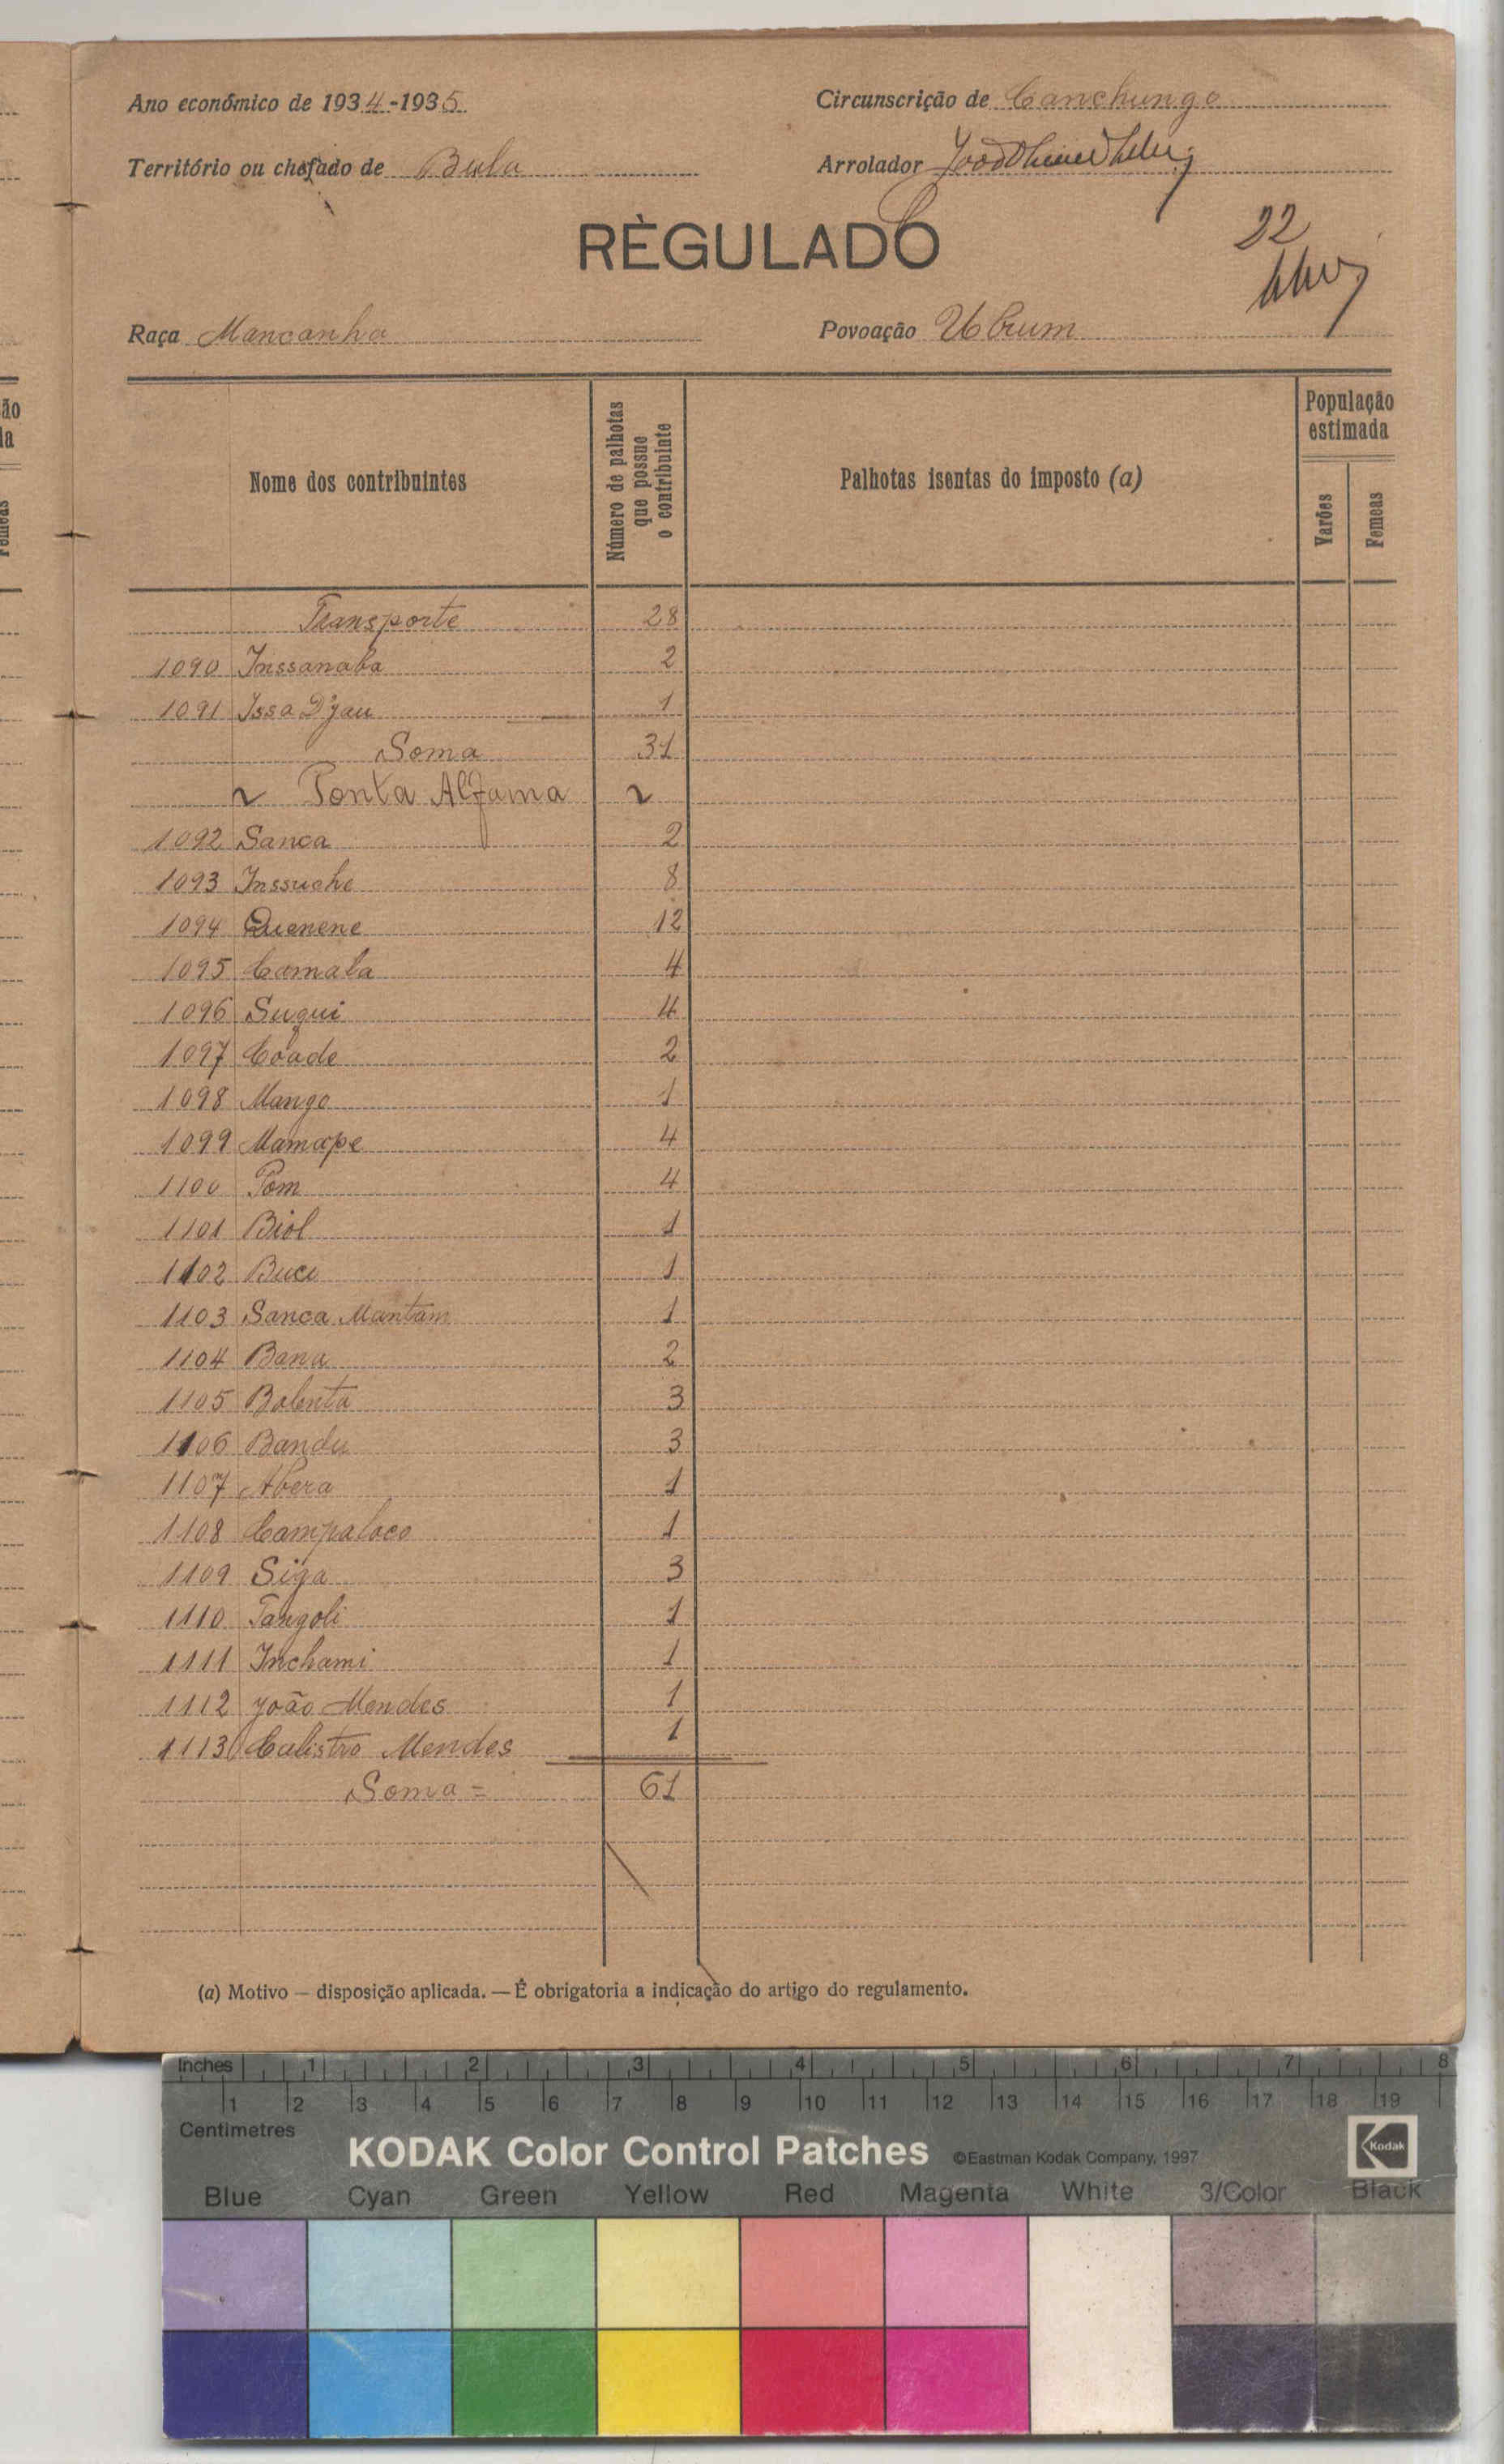 Ano económico de 1934-1935
Circunscrição de Canchungo
Território ou chefado de Bula
Arrolador
RÈGULADO
22
Raça Mancanha
Povoação
Nome dos contribuintes
Número de palhotas que possue o contribuinte
Palhotas isentas do imposto (a)
População estimada
Varões
Femeas
Transporte 28
1090 Inssanaba 2
1091 Issa D'jau 1
Soma 31
Ponta Alfama
1092 Sanca 2
1093 Inssuche 8
1094 Quenene 12
1095 Camala 4
1096 Sugui 4
1097 Coade 2
1098 Mango 1
1099 Mamape 4
1100 Pom 4
1101 Biol 1
1102 Bucu 1
1103 Sanca Mantam 1
1104 Bana 2
1105 Balenta 3
1106 Bandu 3
1107 Abera 1
1108 Campaloco 1
1109 Siga 3
1110 Tangoli 1
1111 Inchami 1
1112 João Mendes 1
1113 Calistro Mendes 1
Soma = 61
(a) Motivo — disposição aplicada. — É obrigatoria a indicação do artigo do regulamento.
ão
la
Femeas
Inches 1 2 3 4 5 6 7 8
1 2 3 4 5 6 7 8 9 10 11 12 13 14 15 16 17 18 19
Centimetres
KODAK Color Control Patches ©Eastman Kodak Company, 1997 Kodak
Blue Cyan Green Yellow Red Magenta White 3/Color Black